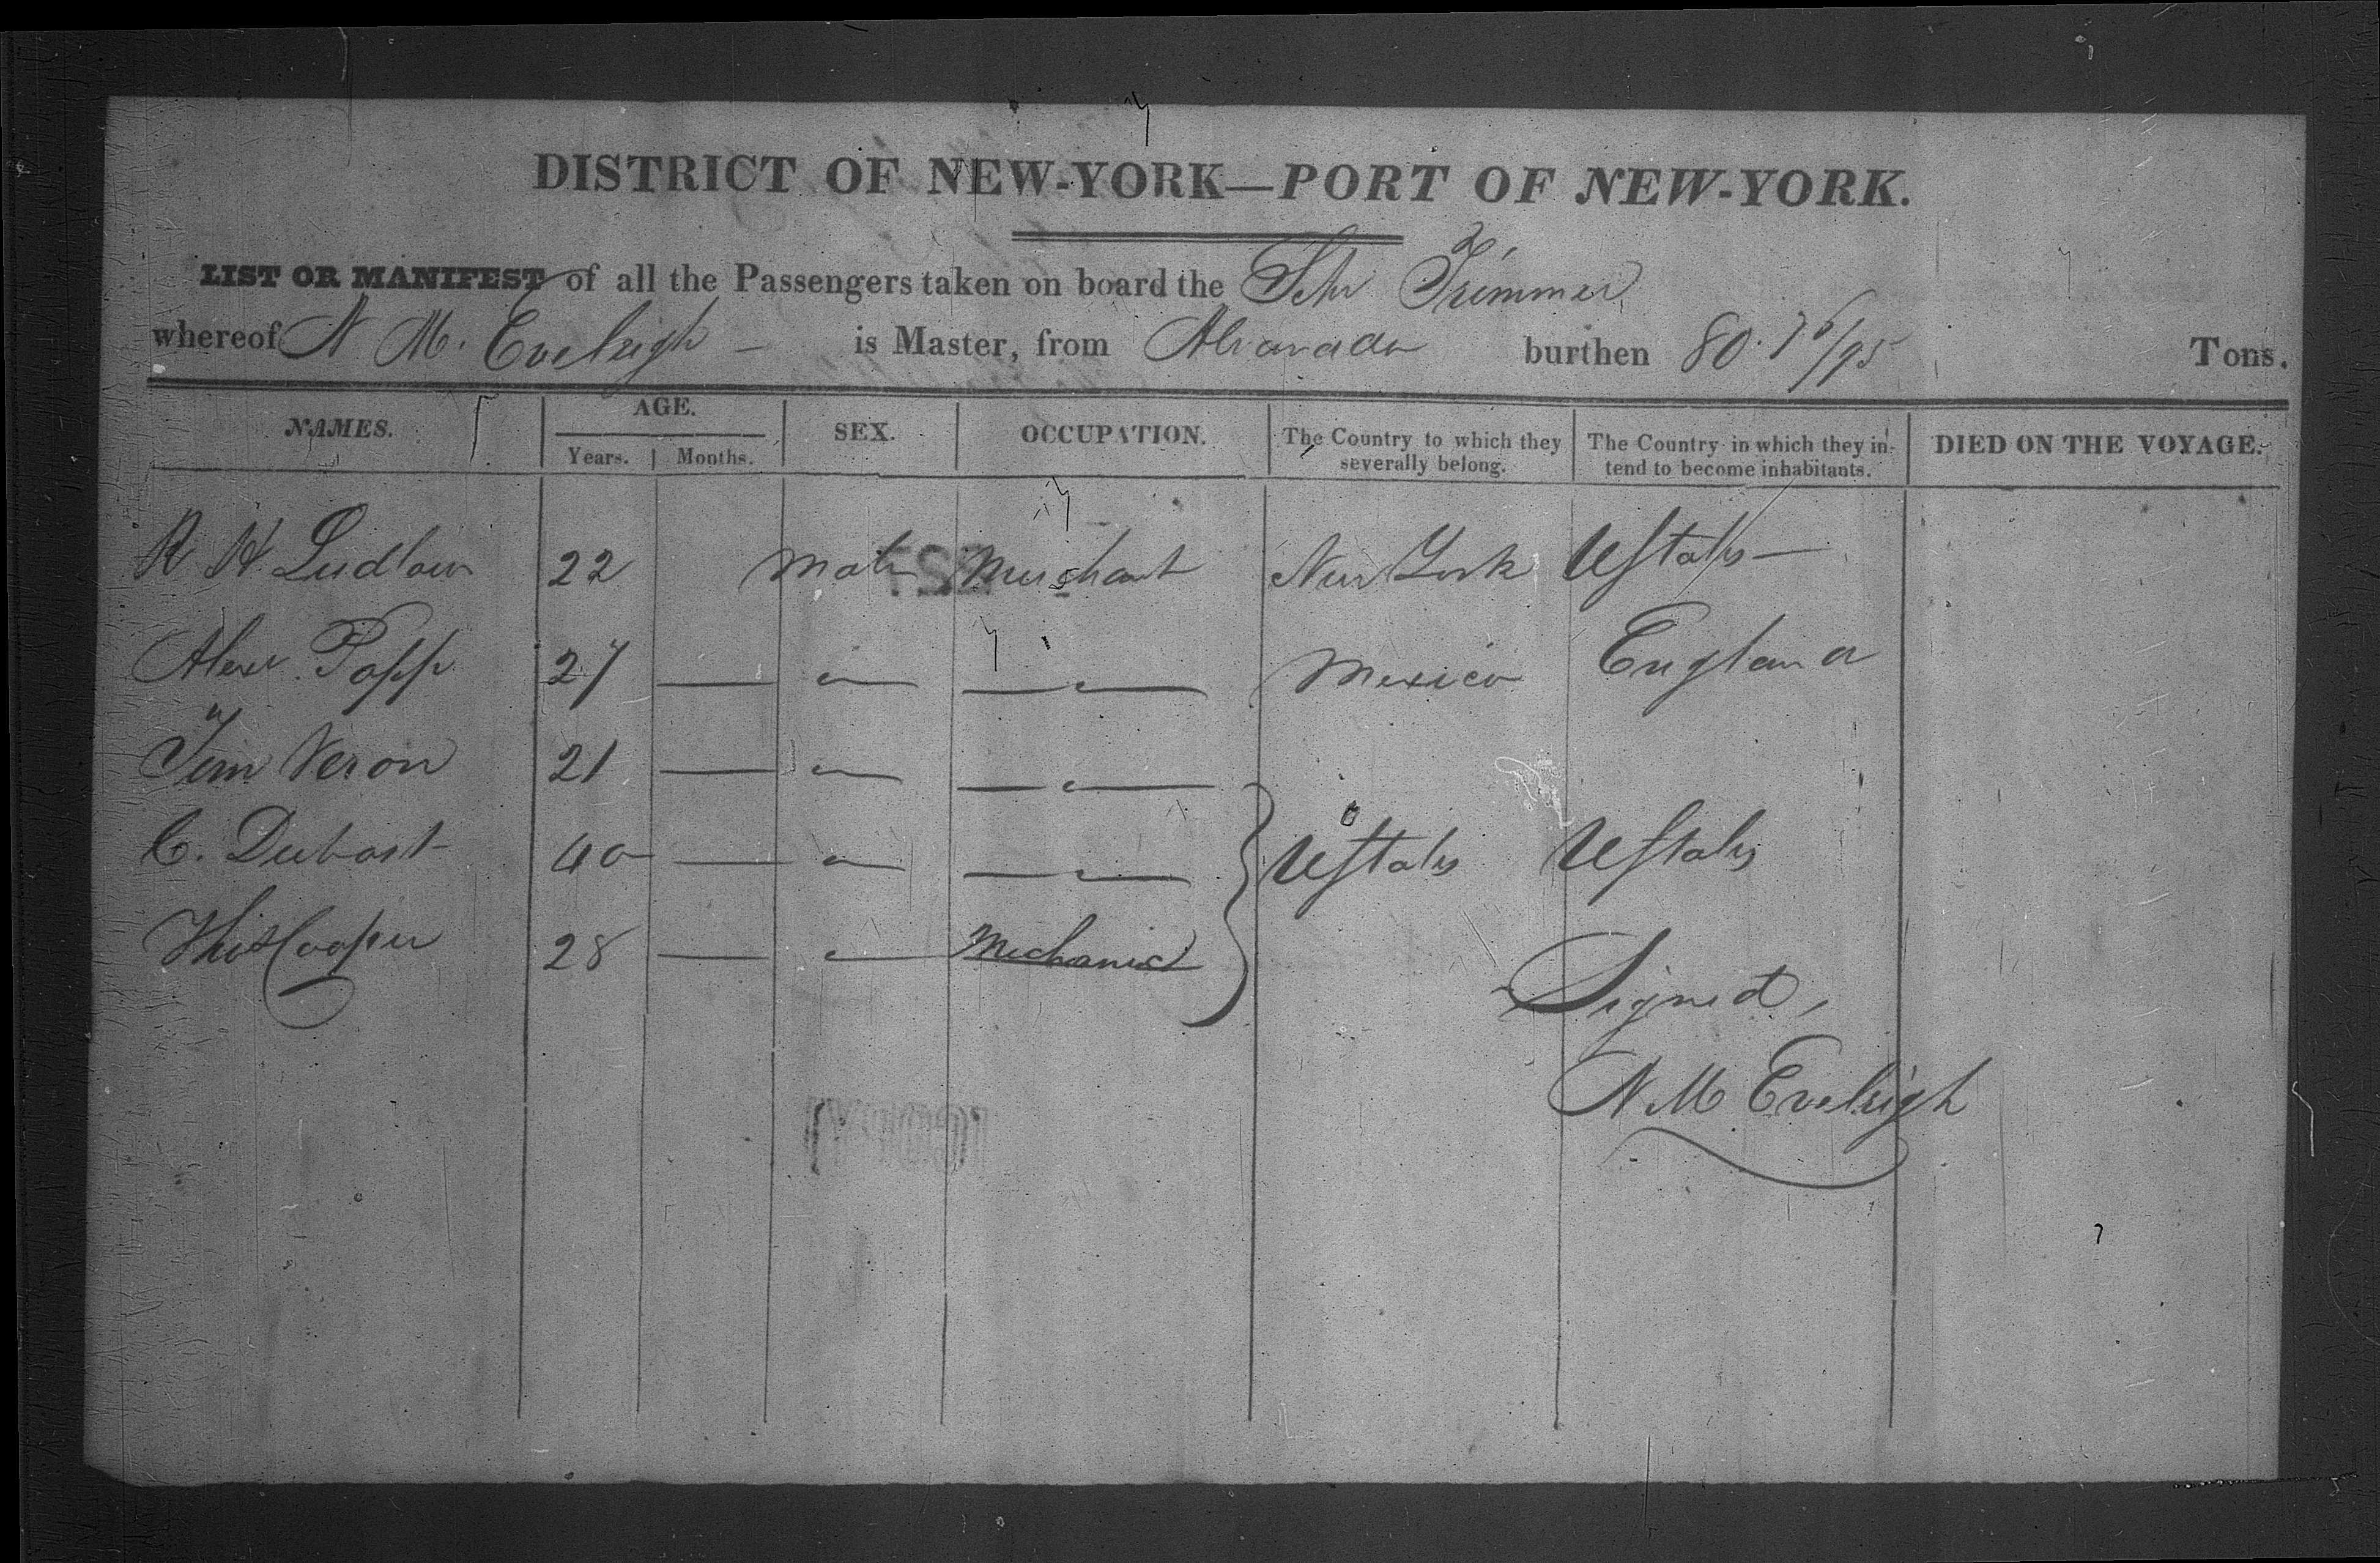 DISTRICT OF NEW-YORK—PORT OF NEW-YORK.
LIST OR MANIFEST of all the Passengers taken on board the Schr Trimmer
whereof N M. Eveleigh — is Master, from Alvarado burthen 80. 76/95 Tons.
NAMES. AGE. Years. Months. SEX. OCCUPATION. The Country to which they severally belong. The Country in which they intend to become inhabitants. DIED ON THE VOYAGE.
R H. Ludlow 22 Male Merchant New York UStates —
Alexr Popp 27 — " — — " — Mexico England
Veron 21 — " — — " —
C. Dubost 40 — " — — " — UStates UStates
Thos Cooper 28 — " — Mechanick
Signed,
N M Eveleigh